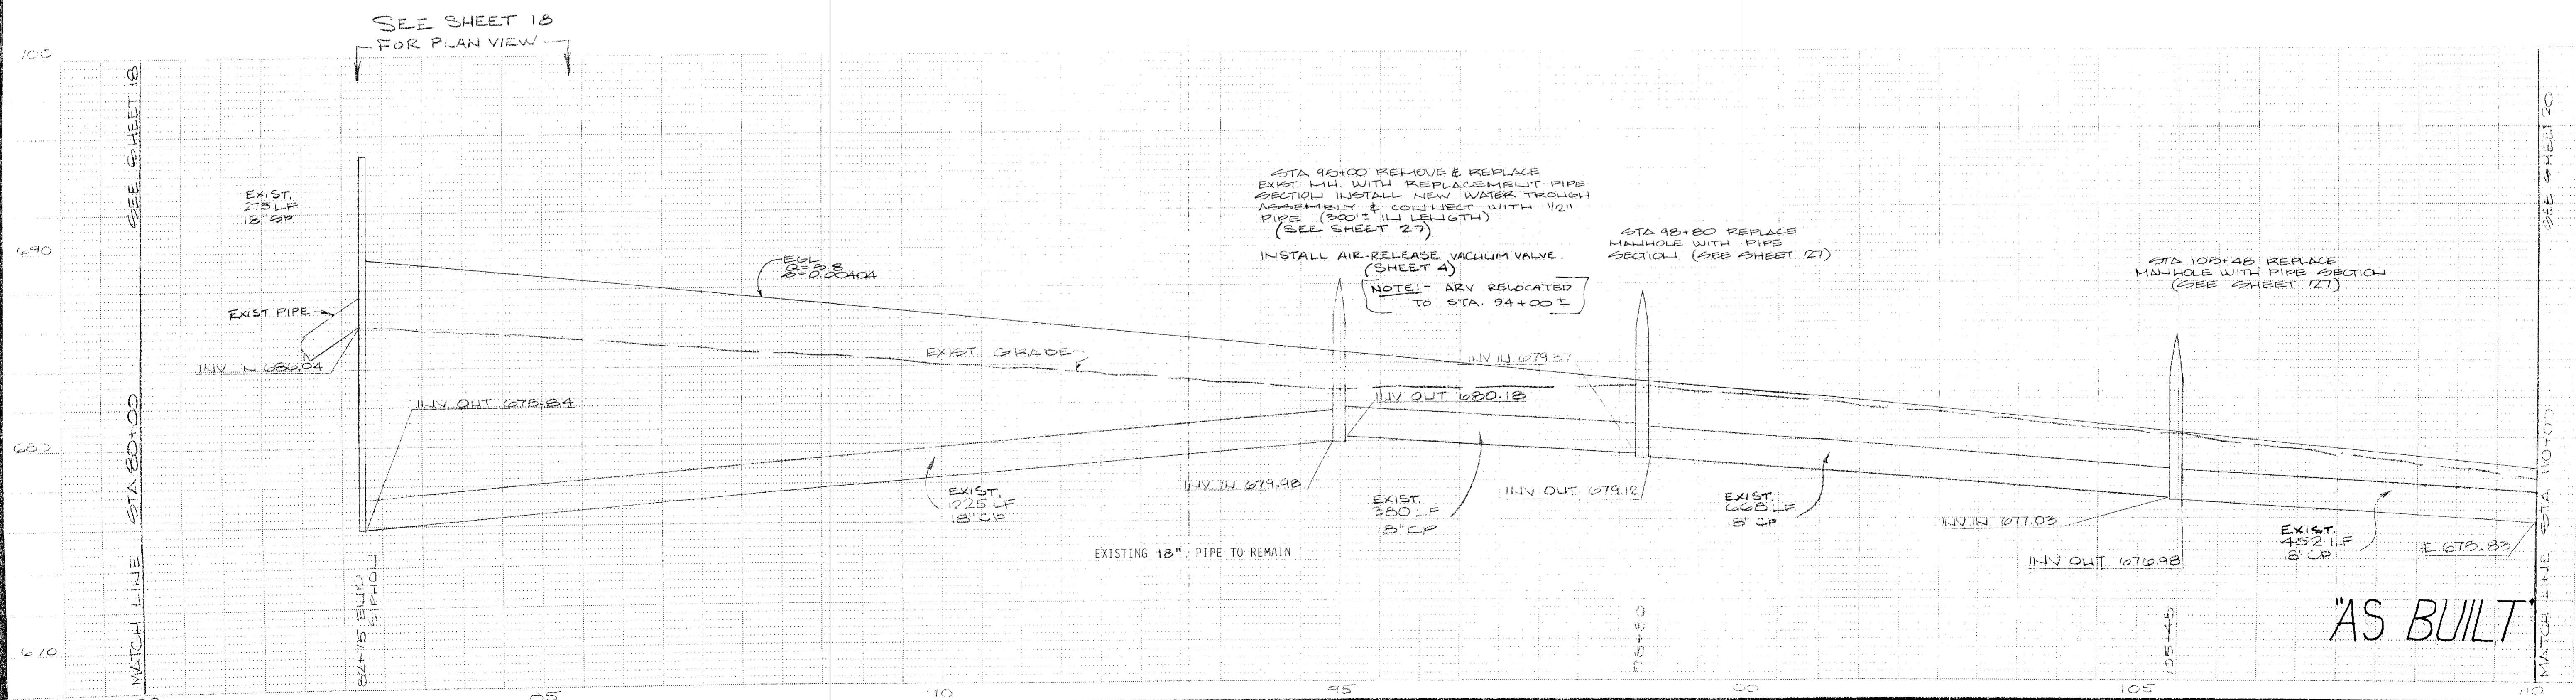 SEE SHEET 18
FOR PLAN VIEW
100
690
680
670
SEE SHEET 18
MATCH LINE STA 80+00
EXIST.
275 LF
18" SP
EXIST PIPE
INV IN 686.04
INV OUT 675.84
82+75 END
SIPHON
EGL
Q=5.8
S=0.00404
EXIST. GRADE
EXIST.
1225 LF
18" CP
EXISTING 18" PIPE TO REMAIN
STA 95+00 REMOVE & REPLACE
EXIST. MH. WITH REPLACEMENT PIPE
SECTION INSTALL NEW WATER TROUGH
ASSEMBLY & CONNECT WITH 1/2"
PIPE (300'± IN LENGTH)
(SEE SHEET 27)
INSTALL AIR-RELEASE VACUUM VALVE.
(SHEET 4)
NOTE:- ARV RELOCATED
TO STA. 94+00±
INV IN 679.37
INV OUT 680.18
INV IN 679.98
EXIST.
380 LF
18" CP
STA 98+80 REPLACE
MANHOLE WITH PIPE
SECTION (SEE SHEET 27)
INV OUT 679.12
98+80
EXIST.
668 LF
18" CP
STA 105+48 REPLACE
MANHOLE WITH PIPE SECTION
(SEE SHEET 27)
INV IN 677.03
INV OUT 676.98
105+48
EXIST.
452 LF
18" CP
℄ 675.83
"AS BUILT"
SEE SHEET 20
MATCH LINE STA 110+00
85
95
105
110